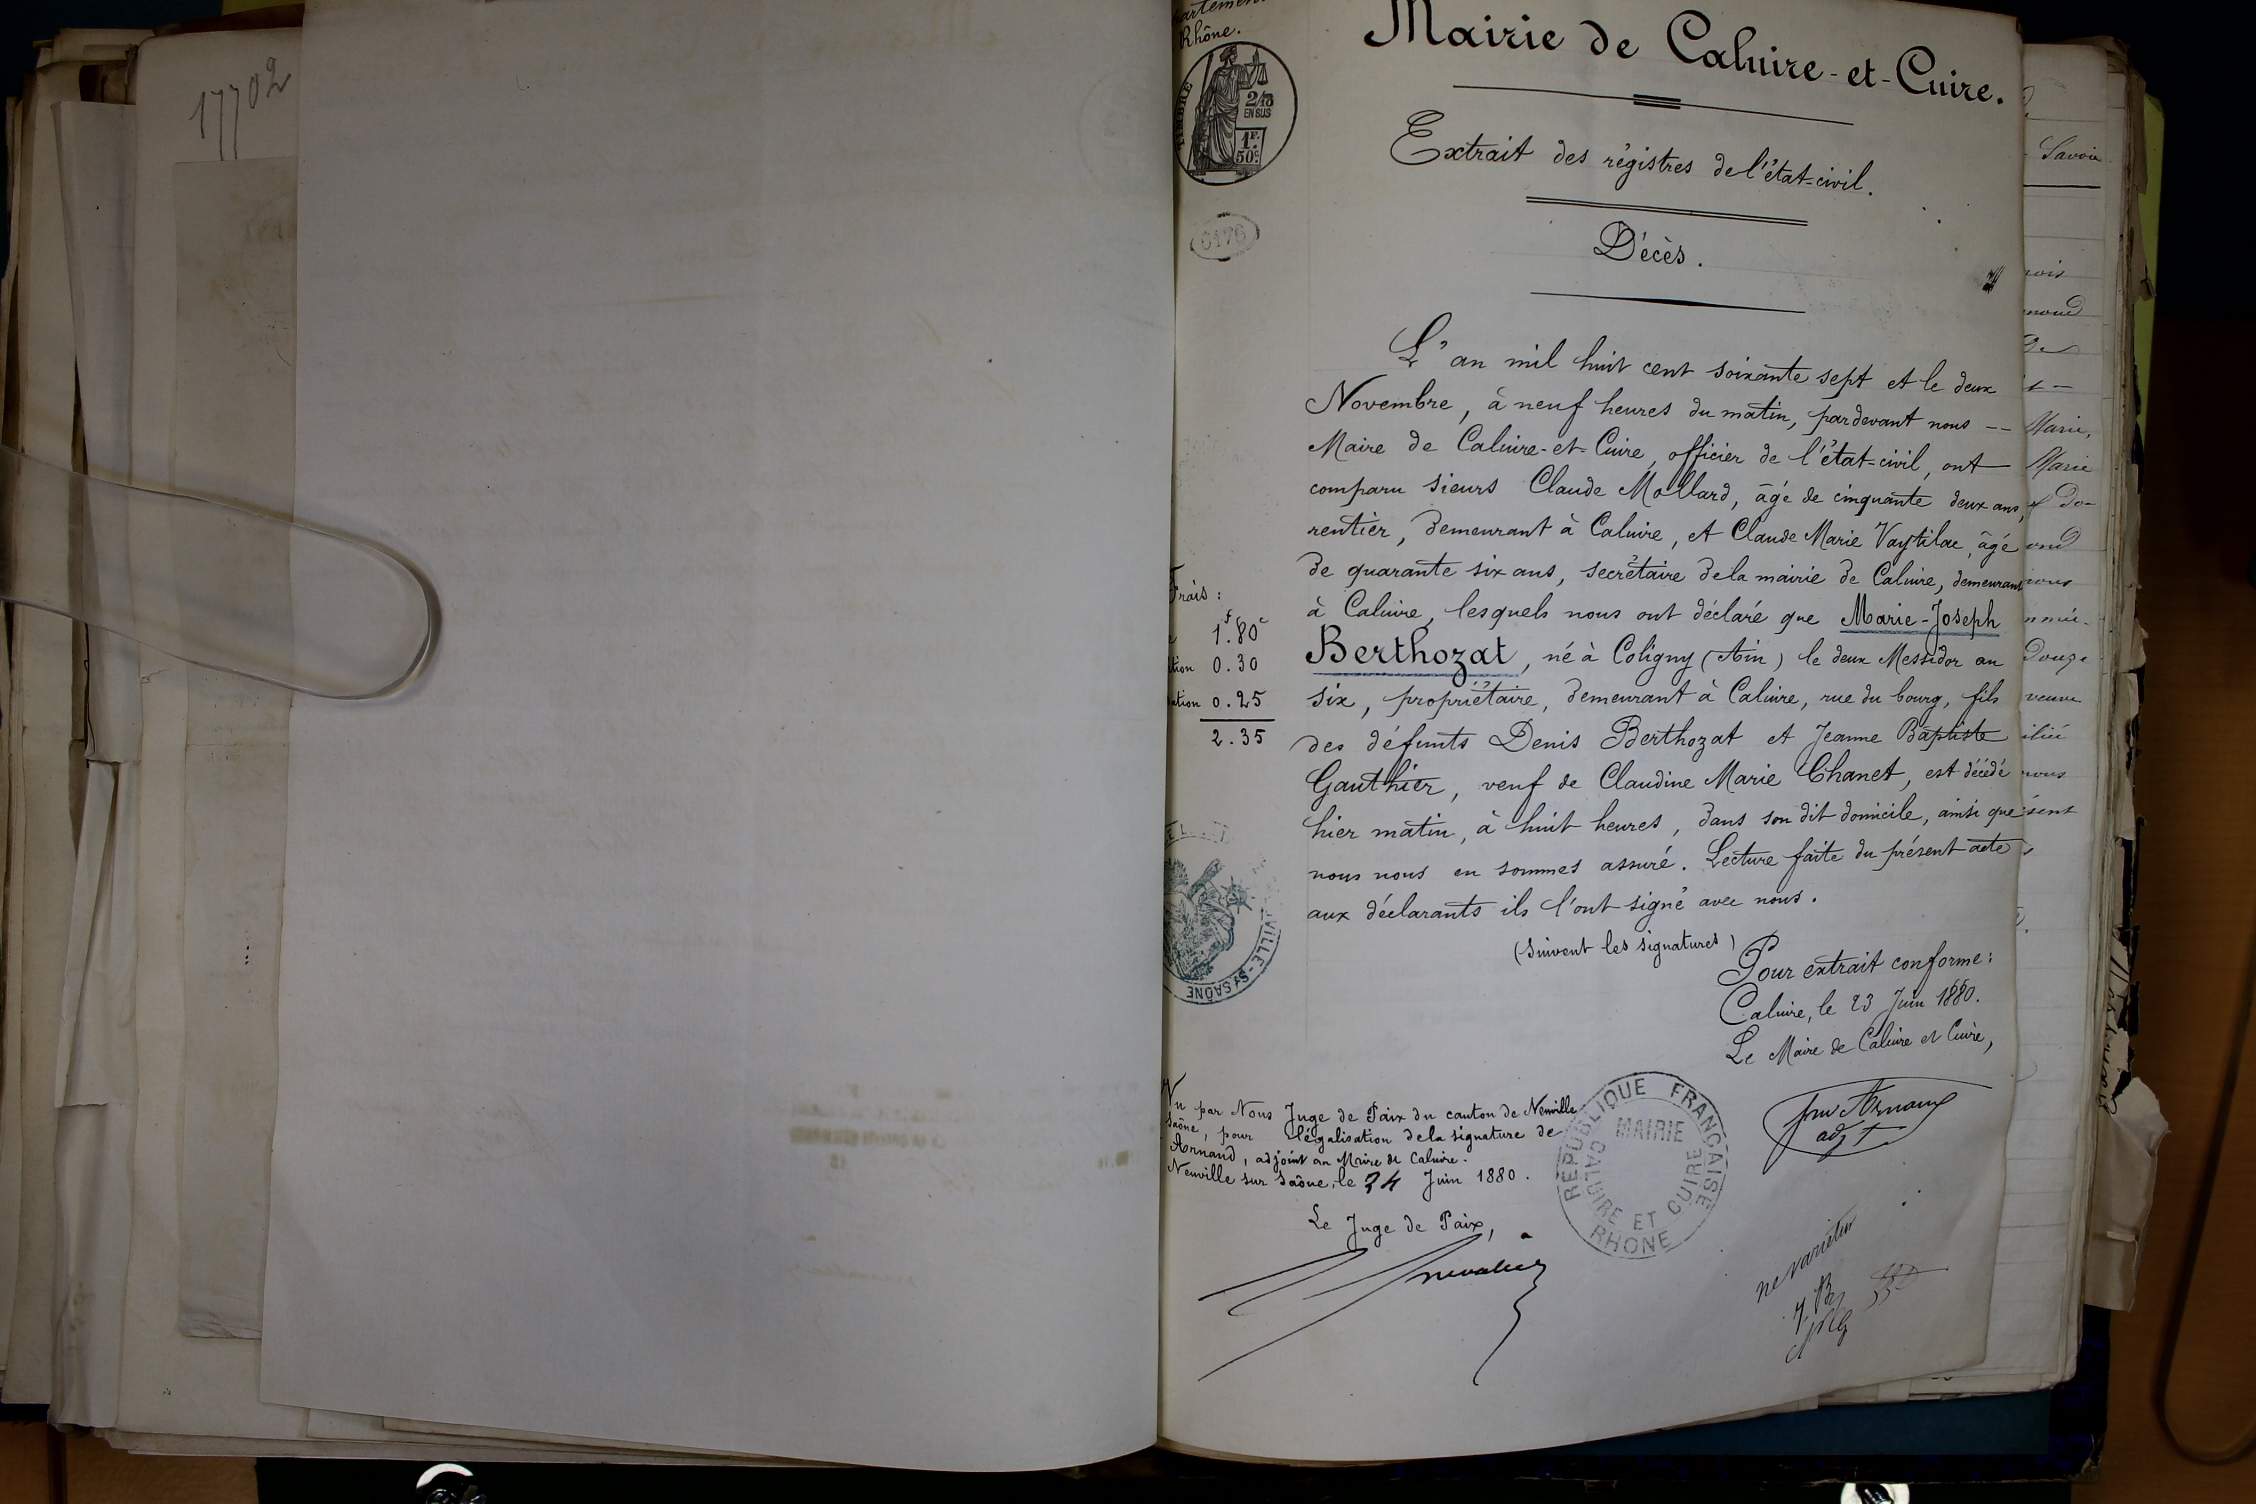 17702
Rhône.
Mairie de Caluire-et-Cuire.
TIMBRE
2/10
EN SUS
1F.
50c.
Extrait des régistres de l'état-civil.
6176
Décès.
L'an mil huit cent soixante sept et le deux
Novembre, à neuf heures du matin, pardevant nous --
Maire de Caluire-et-Cuire, officier de l'état-civil, ont
comparu sieurs Claude Mollard, âgé de cinquante deux ans,
rentier, demeurant à Caluire, et Claude Marie Vaytilac, âgé
de quarante six ans, secrétaire de la mairie de Caluire, demeurant
à Caluire, lesquels nous ont déclaré que Marie-Joseph
Berthozat, né à Coligny (Ain) le deux Messidor an
six, propriétaire, demeurant à Caluire, rue du bourg, fils
des défunts Denis Berthozat et Jeanne Baptiste
Gauthier, veuf de Claudine Marie Chanet, est décédé
hier matin, à huit heures, dans son dit domicile, ainsi que
nous nous en sommes assuré. Lecture faite du présent acte
aux déclarants ils l'ont signé avec nous.
(suivent les signatures)
Frais :
1f.80c
0.30
0.25
2.35
VILLE-St SAÔNE
Pour extrait conforme:
Caluire, le 23 Juin 1880.
Le Maire de Caluire et Cuire,
Arnaud
adjt
Vu par Nous Juge de Paix du canton de Neuville
Saône, pour légalisation de la signature de
Arnand, adjoint au Maire de Caluire.
Neuville sur Saône, le 24 Juin 1880.
Le Juge de Paix,
RÉPUBLIQUE FRANÇAISE
MAIRIE
CALUIRE ET CUIRE
RHONE
ne varietur
Savoie
Marie,
Marie
veuve
nous